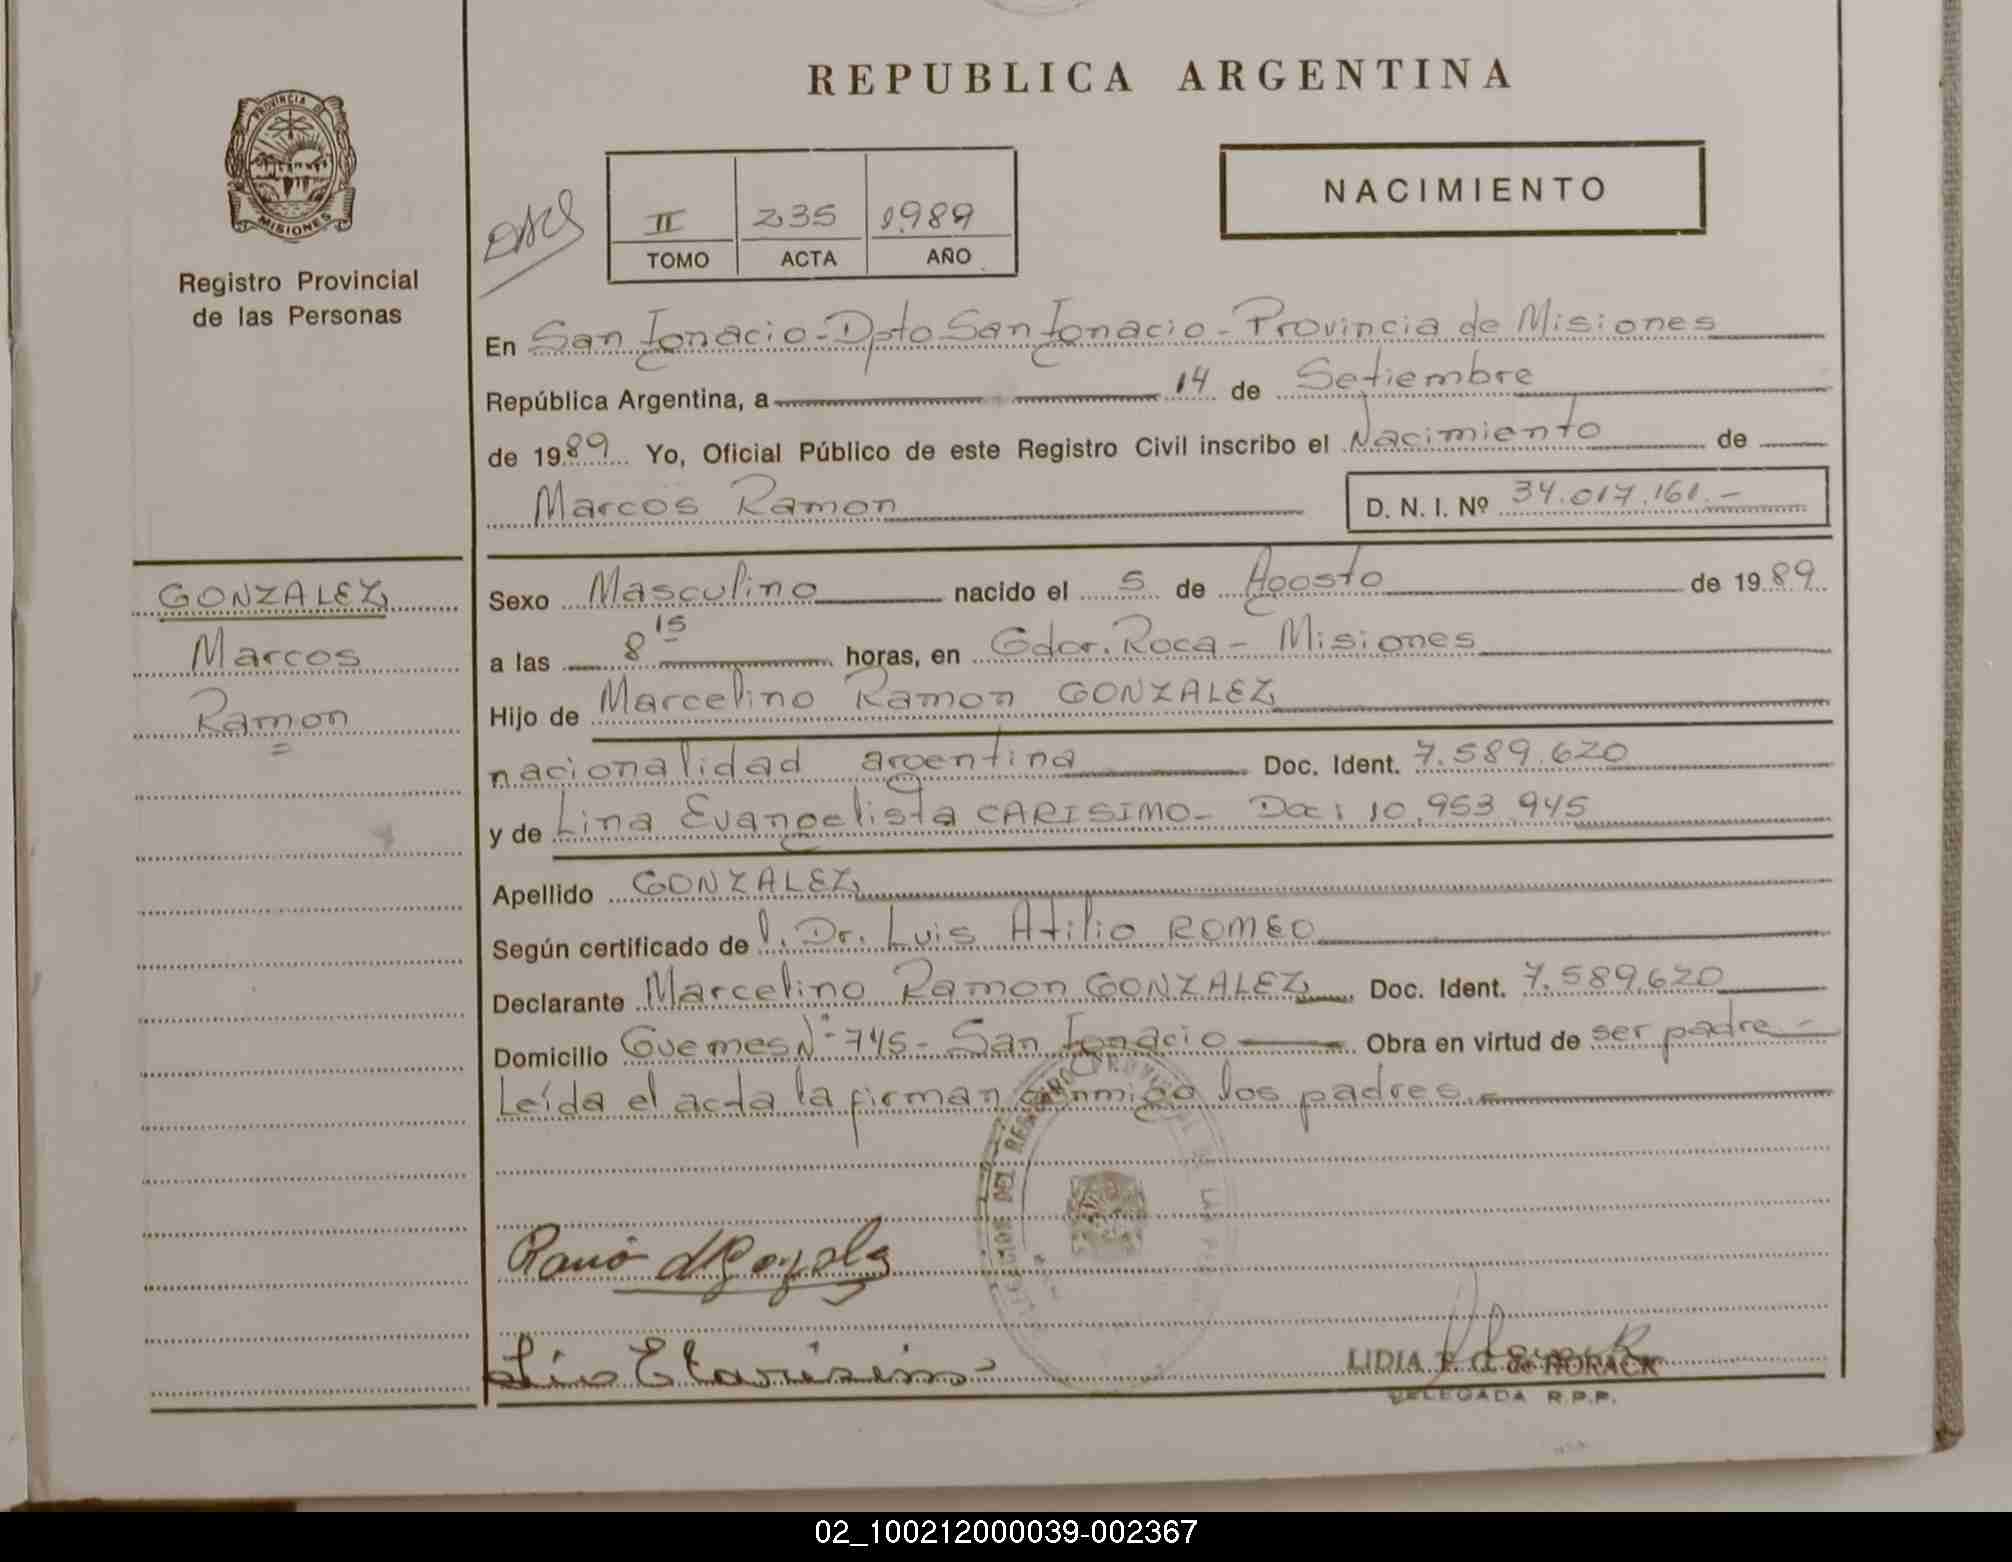 REPUBLICA ARGENTINA
PROVINCIA D
MISIONES
Registro Provincial
de las Personas
II 235 1989
TOMO ACTA AÑO
NACIMIENTO
En San Ignacio - Dpto San Ignacio - Provincia de Misiones
República Argentina, a 14 de Setiembre
de 1989 Yo, Oficial Público de este Registro Civil inscribo el Nacimiento de
Marcos Ramon D. N. I. Nº 34.017.161.-
GONZALEZ
Marcos
Ramon
Sexo Masculino nacido el 5 de Agosto de 1989
a las 8 15 horas, en Gdor. Roca - Misiones
Hijo de Marcelino Ramon GONZALEZ
nacionalidad argentina Doc. Ident. 7.589.620
y de Lina Evangelista CARISIMO - Doc: 10.953.945
Apellido GONZALEZ
Según certificado de l. Dr. Luis Atilio ROMEO
Declarante Marcelino Ramon GONZALEZ Doc. Ident. 7.589.620
Domicilio Guemes Nº 745 - San Ignacio Obra en virtud de ser padre -
Leída el acta la firman conmigo los padres.-
LIDIA de HORACK
DELEGADA R.P.P.
02_100212000039-002367